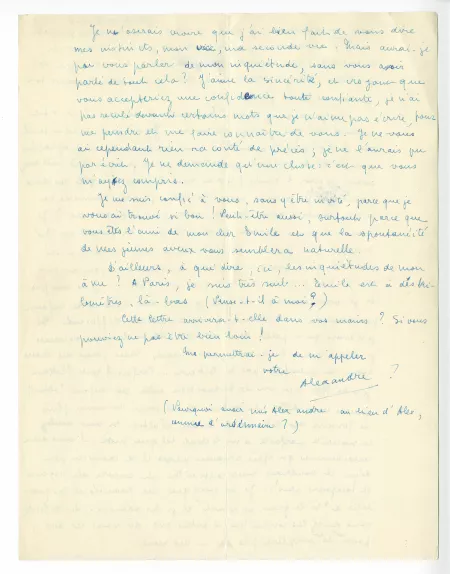 Je ne saurais croire que j'ai bien fait de vous dire
mes instincts, mon vice, ma seconde vie. Mais aurais-je
pu vous parler de mon inquiétude, sans vous avoir
parlé de tout cela? J'aime la sincérité, et croyant que
vous accepteriez une confidence toute confiante, je n'ai
pas reculé devant certains mots que je n'aime pas écrire, pour
me peindre et me faire connaître de vous. Je ne vous
ai cependant rien raconté de précis; je ne l'aurais pu
par écrit. Je ne demande qu'une chose: c'est que vous
m'ayez compris.
Je me suis confié à vous, sans y être invité, parce que je
vous ai trouvé si bon! Peut-être aussi, surtout, parce que
vous êtes l'ami de mon cher Emile et que la spontanéité
de mes jeunes aveux vous semblera naturelle.
D'ailleurs, à que dire, ici, les inquiétudes de mon
âme? A Paris, je suis très seul... Emile est à des ki-
lomètres, là-bas (Pense-t-il à moi?)
Cette lettre arrivera-t-elle dans vos mains? Si vous
pouviez ne pas être bien loin!
Me permettrai-je de m'appeler
votre
Alexandre ?
(Pourquoi avoir mis Alexandre au lieu d'Alex,
comme d'ordinaire?)